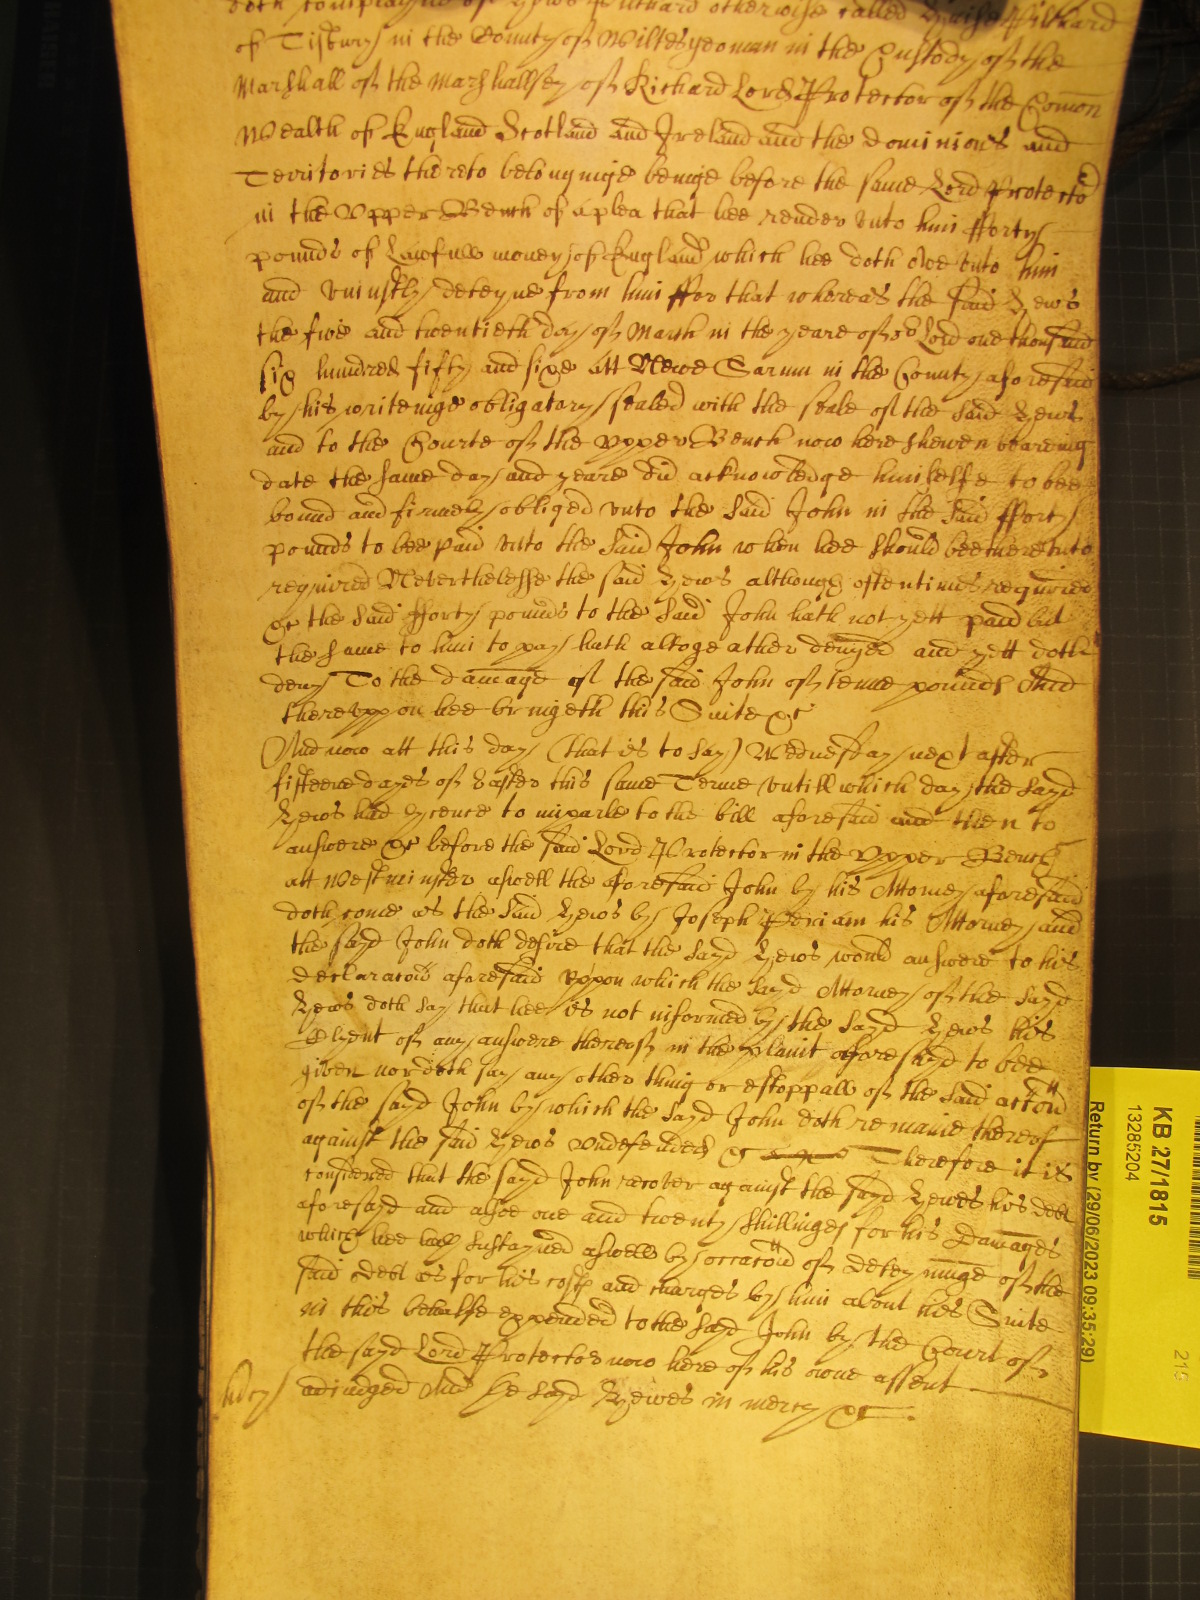 doth complayne of Lewis Pitchard otherwise called
of Tisbury in the County of Wiltes yeoman in the Custody of the
Marshall of the Marshallsey of Richard Lord Protector of the Comon
Wealth of England Scotland and Ireland and the dominions and
Territories thereto belonginge beinge before the same Lord Protector
in the Vpper Bench of a plea that hee render vnto him fforty
pounds of Lawfull money of England which hee doth owe vnto him
and vniustly deteyne from him ffor that whereas the said Lewis
the five and twentieth day of March in the yeare of or Lord one thousand
six hundred fifty and sixe att Newe Sarum in the County aforesaid
by his writeinge obligatory sealed with the seale of the said Lewis
and to the Courte of the Vpper Bench now here shewen beareing
date the same day and yeare did acknowledge himselfe to bee
bound and firmely obliged vnto the said John in the said fforty
pounds to bee paid vnto the said John when hee should bee therevnto
required Neverthelesse the said Lewis although oftentimes required
&c the said fforty pounds to the said John hath not yett paid but
the same to him to pay hath altogeather denyed and yett doth
deny To the damage of the said John of tenne pounds And
therevppon hee bringeth this Suite &c
And now att this day (that is to say) Wednesday next after
fifteene dayes of Easter this same Terme vntill which day the sayd
Lewis had lycence to imparle to the bill aforesaid and then to
answere &c before the said Lord Protector in the Vpper Bench
att Westminster aswell the aforesaid John by his Attorney aforesaid
doth come as the said Lewis by Joseph Periam his Attorney and
the sayd John doth desire that the sayd Lewis would answere to his
declaracon aforesaid Vppon which the sayd Attorney of the sayd
Lewis doth say that hee is not informed by the sayd Lewis his
Clyent of any answere thereof in the plaint aforesayd to bee
given nor doth say any other thing or estoppall of the said accon
of the sayd John by which the sayd John doth remaine thereof
against the said Lewis vndefended &c Therefore it is
considered that the sayd John recover against the sayd Lewes his debt
aforesayd and alsoe one and twenty shillinges for his Damages
which hee hath sustayned aswell by occacon of deteyninge of the
said debt as for his costs and charges by him about his Suite
in this behalfe expended to the sayd John by the Court of
the sayd Lord Protector now here of his owne assent
mercy adiudged And the sayd Lewes in mercy &c
KB 27/1815
13285204
Return by (29/06/2023 09:35:29)
215